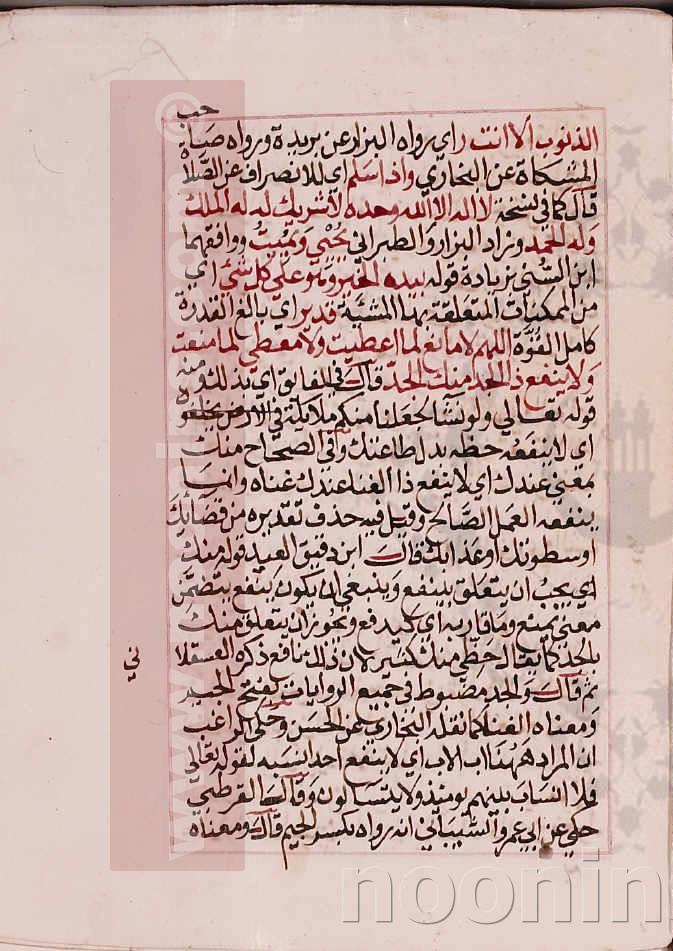 حب
الذنوب الا انت راي رواه البزار عن بريدة ورواه صاحب
المشكاة عن البخاري واذا سلم اي للانصراف عن الصلاة
قال كما في نسخة لا اله الا الله وحده لا شريك له له الملك
وله الحمد وزاد البزار والطبراني يحيي ويميت ووافقهما
ابن السني بزيادة قوله بيده الخير وهو على كل شئ اي
من الممكنات المتعلقة بها المشيئة قدير اي بالغ القدرة
كامل القوة اللهم لا مانع لما اعطيت ولا معطي لما منعت
ولا ينفع ذا الجد منك الجد قال في الفائق اي بذلك ومنه
قوله تعالى ولو نشا لجعلنا منكم ملايكة في الارض يخلفون
اي لا ينفعه حظه بدل طاعتك وفي الصحاح منك
بمعني عندك اي لا ينفع ذا الغنا عندك غناه وانما
ينفعه العمل الصالح وقيل فيه حذف تقديره من قضائك
او سطوتك او عذابك قال ابن دقيق العيد قوله منك
اي يجب ان يتعلق بينفع وينبغي ان يكون ينفع يتضمن
معني يمنع وما قاربه اي كيدفع ويجوز ان يتعلق منك
بالجد كما يقال حظي منك كثير لان ذلك نافع ذكره العسقلا
ني
ثم قال والجد مضبوط في جميع الروايات بفتح الجيم
ومعناه الغنا كما نقله البخاري عن الحسن وحكى الراغب
ان المراد ههنا اب الاب اي لا ينفع احدا نسبه لقوله تعالى
فلا انساب بينهم يومئذ ولا يتسالون وقال القرطبي
حكي عن ابي عمرو الشيباني انه رواه بكسر الجيم قال ومعناه
noonin